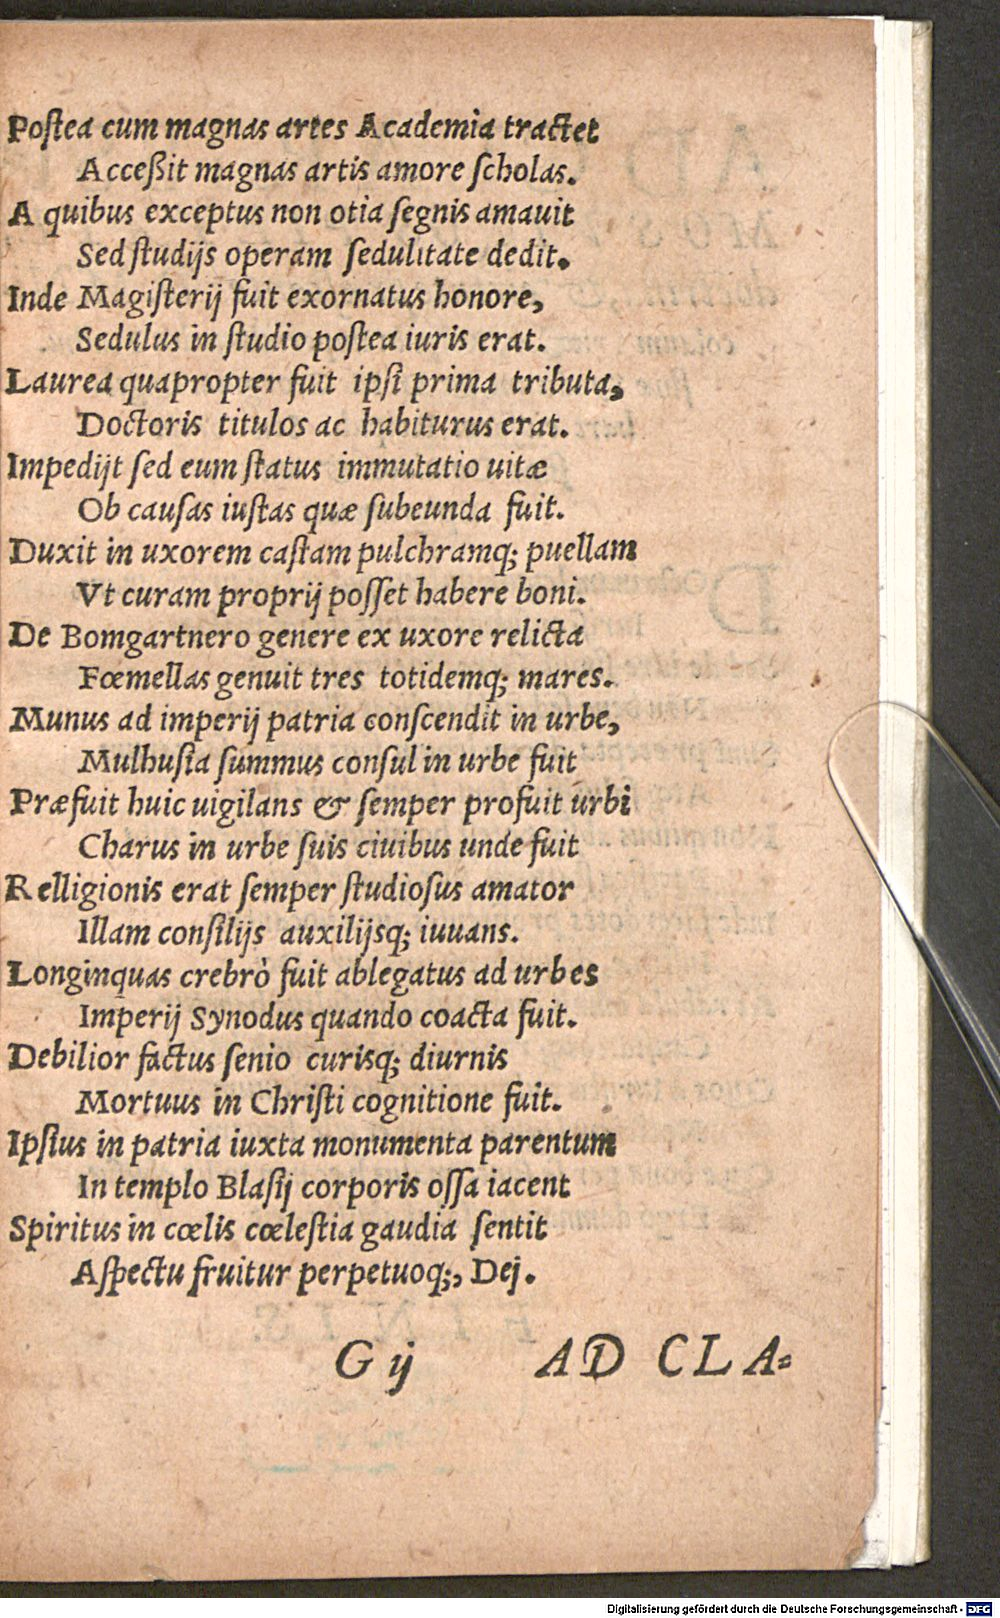 Poſtea cum magnas artes Academia tractet
Acceßit magnas artis amore ſcholas.
A quibus exceptus non otia ſegnis amauit
Sed ſtudijs operam ſedulitate dedit.
Inde Magiſterij fuit exornatus honore,
Sedulus in ſtudio poſtea iuris erat.
Laurea quapropter fuit ipſi prima tributa,
Doctoris titulos ac habiturus erat.
Impedijt ſed eum ſtatus immutatio uitæ
Ob cauſas iuſtas quæ ſubeunda fuit.
Duxit in uxorem caſtam pulchramq; puellam
Vt curam proprij poſſet habere boni.
De Bomgartnero genere ex uxore relicta
Fœmellas genuit tres totidemq; mares.
Munus ad imperij patria conſcendit in urbe,
Mulhuſia ſummus conſul in urbe fuit
Præfuit huic uigilans & ſemper profuit urbi
Charus in urbe ſuis ciuibus unde fuit
Relligionis erat ſemper ſtudioſus amator
Illam conſilijs auxilijsq; iuuans.
Longinquas crebrò fuit ablegatus ad urbes
Imperij Synodus quando coacta fuit.
Debilior factus ſenio curisq; diurnis
Mortuus in Chriſti cognitione fuit.
Ipſius in patria iuxta monumenta parentum
In templo Blaſij corporis oſſa iacent
Spiritus in cœlis cœleſtia gaudia ſentit
Aſpectu fruitur perpetuoq;, Dej.
G ij AD CLA=
Digitalisierung gefördert durch die Deutsche Forschungsgemeinschaft - DFG